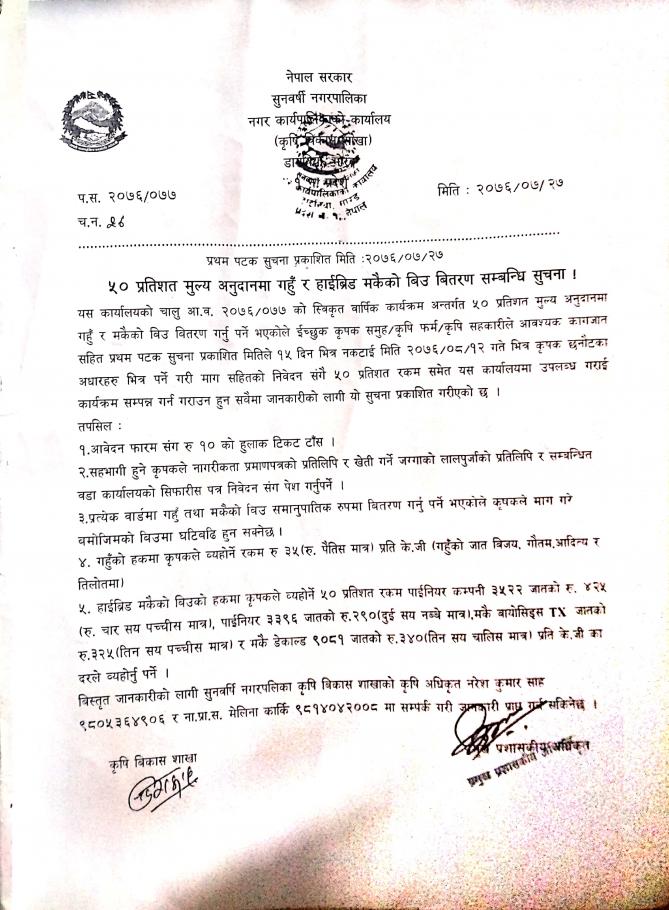 नेपाल सरकार
सुनवर्षी नगरपालिका
नगर कार्यपालिकाको कार्यालय
(कृषि विकास शाखा)
प.स. २०७६/०७७
मिति : २०७६/०७/२७
च.न. २६
प्रथम पटक सुचना प्रकाशित मिति :२०७६/०७/२७
५० प्रतिशत मुल्य अनुदानमा गहुँ र हाईब्रिड मकैको बिउ बितरण सम्बन्धि सुचना !
यस कार्यालयको चालु आ.व. २०७६/०७७ को स्विकृत वार्षिक कार्यक्रम अन्तर्गत ५० प्रतिशत मुल्य अनुदानमा
गहुँ र मकैको बिउ वितरण गर्नु पर्ने भएकोले ईच्छुक कृषक समुह/कृषि फर्म/कृषि सहकारीले आवश्यक कागजात
सहित प्रथम पटक सुचना प्रकाशित मितिले १५ दिन भित्र नकटाई मिति २०७६/०८/१२ गते भित्र कृषक छनौटका
अधारहरु भित्र पर्ने गरी माग सहितको निवेदन संगै ५० प्रतिशत रकम समेत यस कार्यालयमा उपलब्ध गराई
कार्यक्रम सम्पन्न गर्न गराउन हुन सवैमा जानकारीको लागी यो सुचना प्रकाशित गरीएको छ ।
तपसिल :
१.आवेदन फारम संग रु १० को हुलाक टिकट टाँस ।
२.सहभागी हुने कृषकले नागरीकता प्रमाणपत्रको प्रतिलिपि र खेती गर्ने जग्गाको लालपुर्जाको प्रतिलिपि र सम्बन्धित
वडा कार्यालयको सिफारीस पत्र निवेदन संग पेश गर्नुपर्ने ।
३.प्रत्येक वार्डमा गहुँ तथा मकैको बिउ समानुपातिक रुपमा बितरण गर्नु पर्ने भएकोले कृषकले माग गरे
बमोजिमको बिउमा घटिवढि हुन सक्नेछ ।
४. गहुँको हकमा कृषकले व्यहोर्ने रकम रु ३५(रु. पैतिस मात्र) प्रति के.जी (गहुँको जात बिजय, गौतम,आदित्य र
तिलोतमा)
५. हाईब्रिड मकैको बिउको हकमा कृषकले व्यहोर्ने ५० प्रतिशत रकम पाईनियर कम्पनी ३५२२ जातको रु. ४२५
(रु. चार सय पच्चीस मात्र), पाईनियर ३३९६ जातको रु.२९०(दुई सय नब्बे मात्र),मकै बायोसिड्स TX जातको
रु.३२५(तिन सय पच्चीस मात्र) र मकै डेकाल्ड ९०८१ जातको रु.३४०(तिन सय चालिस मात्र) प्रति के.जी का
दरले व्यहोर्नु पर्ने ।
बिस्तृत जानकारीको लागी सुनवर्षि नगरपलिका कृषि बिकास शाखाको कृषि अधिकृत नरेश कुमार साह
९८०५३६४९०६ र ना.प्रा.स. मेलिना कार्कि ९८१४०४२००८ मा सम्पर्क गरी जानकारी प्राप्त गर्न सकिनेछ ।
कृषि बिकास शाखा
प्रमुख प्रशासकीय अधिकृत
प्रमुख प्रशासकीय अधिकृत